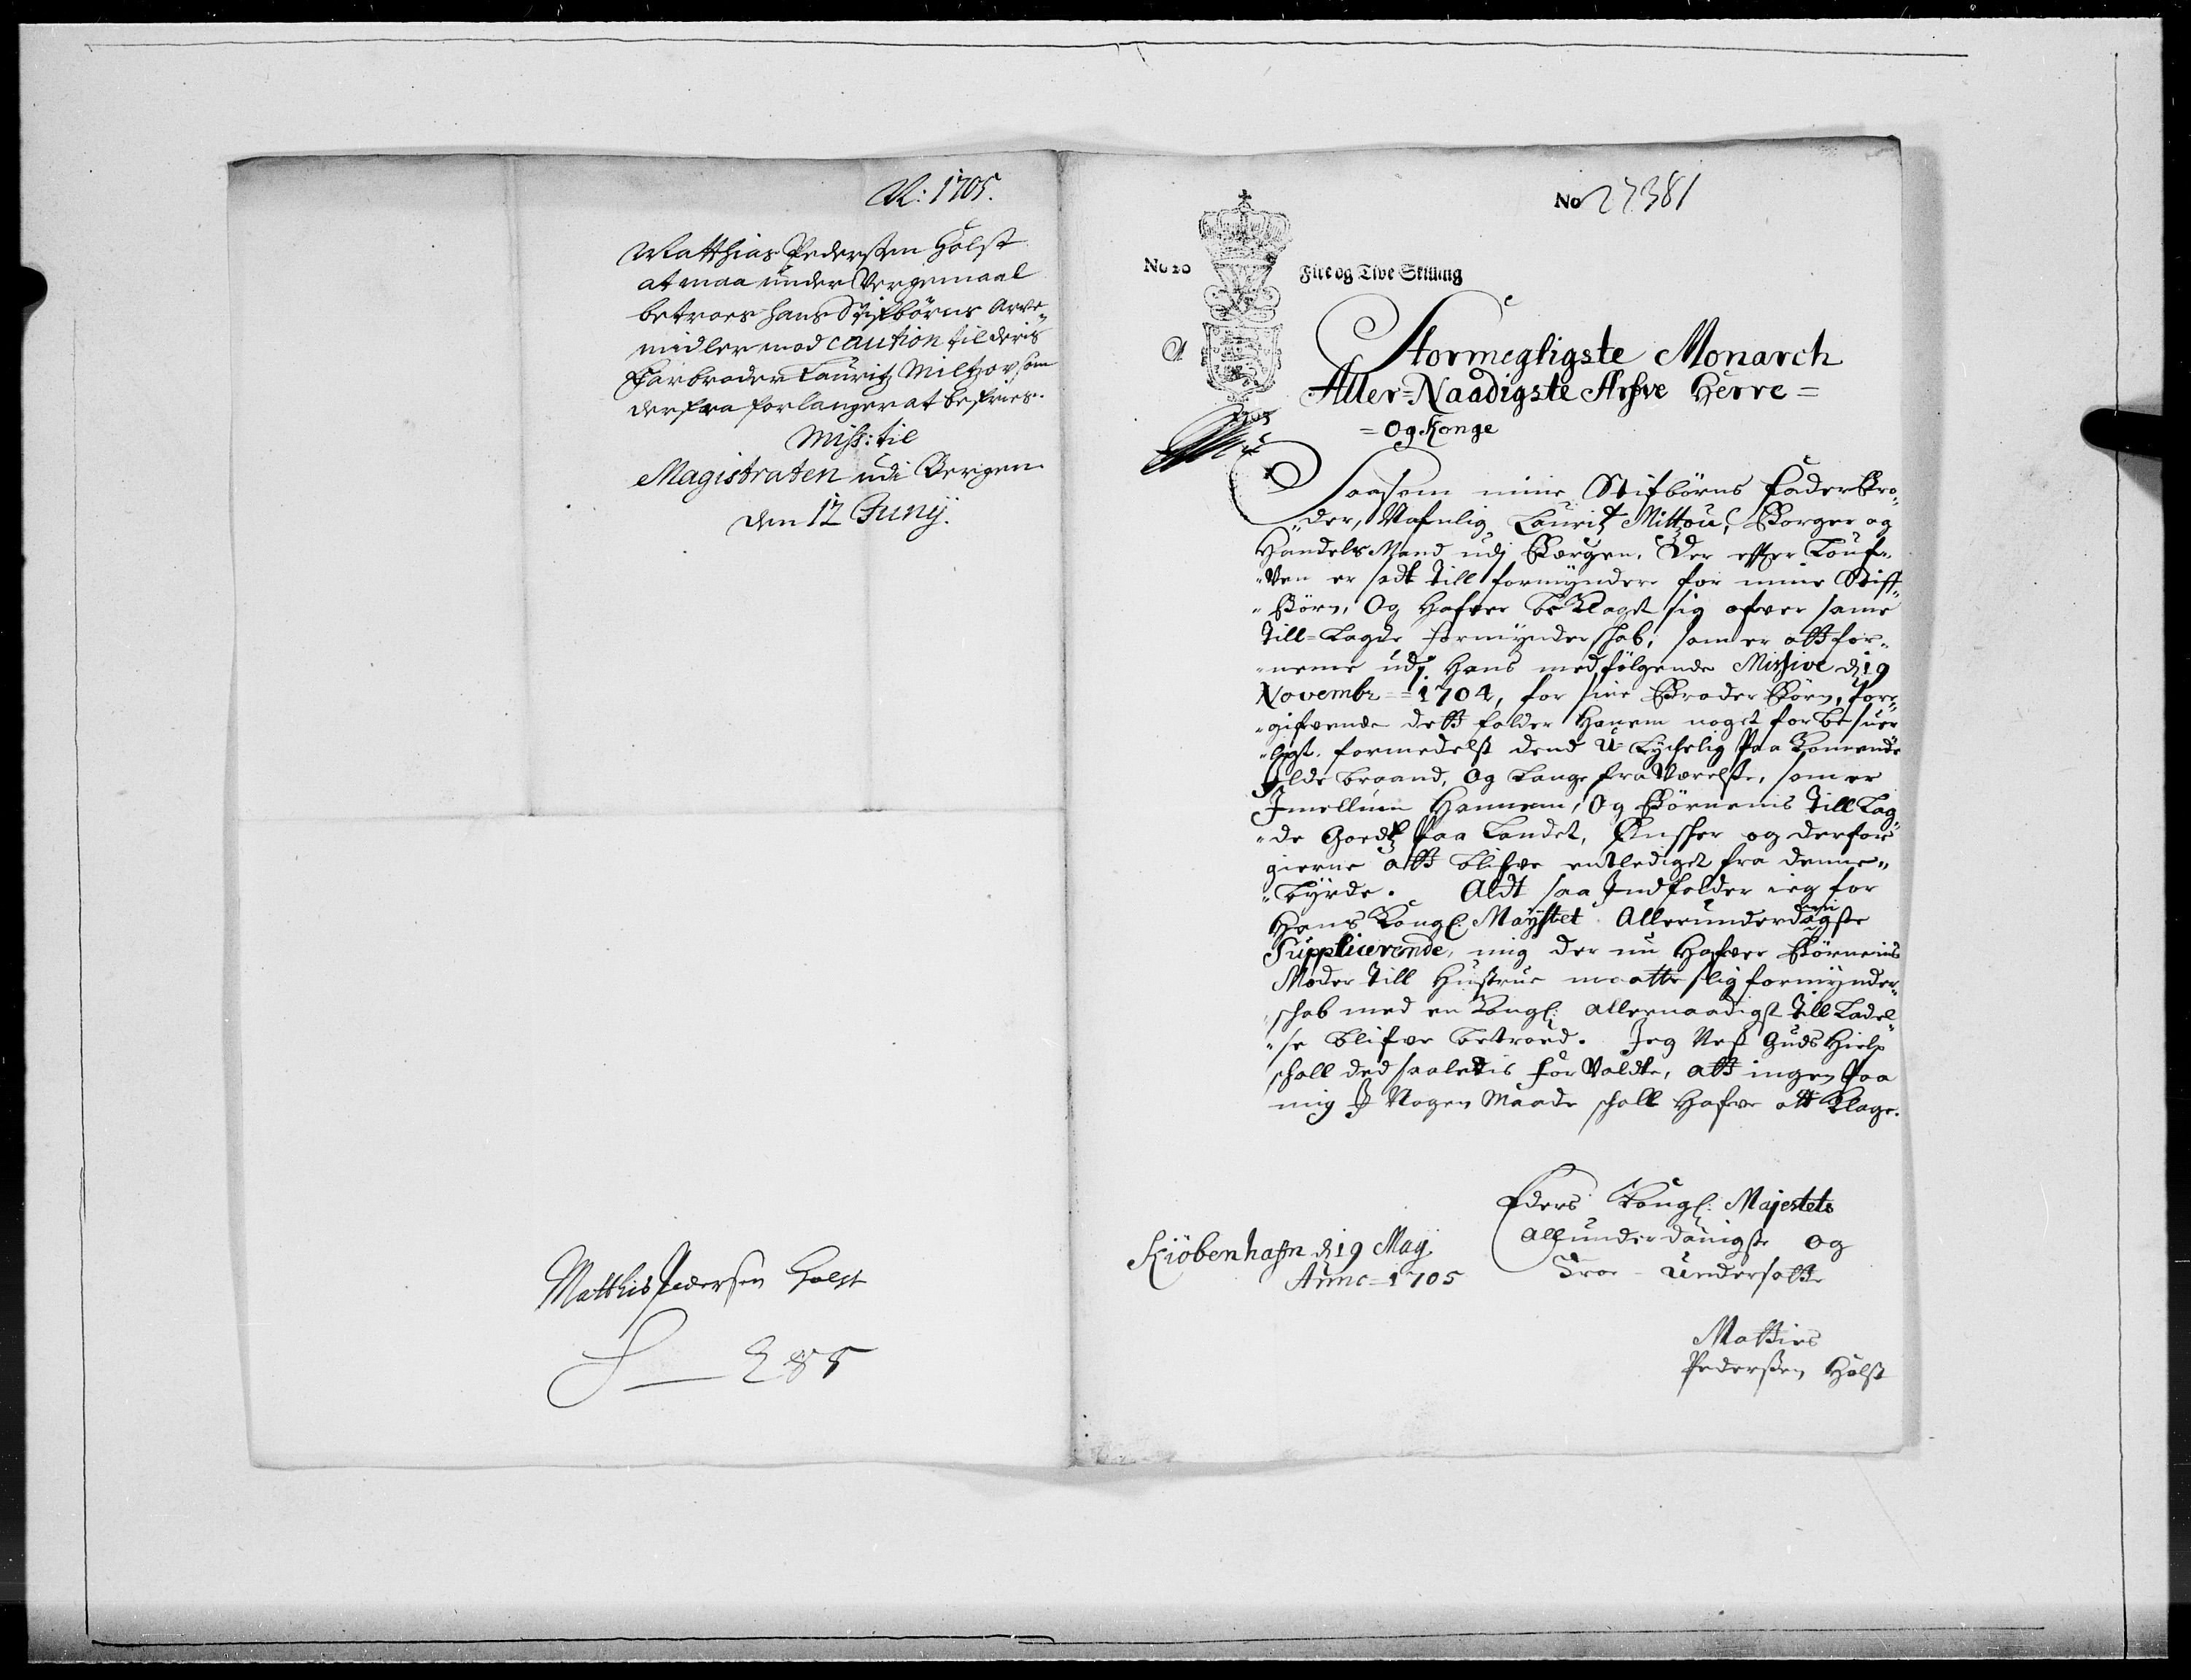 N: 1705.
Matthias Pederssen Holst
at maa under Vergemaal
betroes hans Stifbörns Arve„
midler mod caution til deris
Farbroder Lauritz Miltzov som
derfra forlanger at befries.
Miss: til
Magistraten udi Bergen
den 12 Junij.
Matthis Pedersen Holst
No 27381
No 20
Fire og Tive Skilling
1705
Stormegtigste Monarch
Aller=Naadigste Arfve Herre=
=Og Konge
Saasom mine Stifbörns Fader Bro„
„der, Nafnlig Lauritz Miltzou, Borger og
Handels Mand udj Bergen, Der effter Louf„
„ven er sadt till formyndere for mine Stiff„
„Börn, Og Hafver beklaget sig ofver same
Till=Lagde formynderskab, som er att for„
„neme udj Hans medfölgende Missive d. 19
Novembr = 1704, for sine Broder Börn, fore„
„gifvende dett falder Hanem noget for besuer„
„ligt. formedelst dend U=Lychelig Paa Komende
Ilde braand, Og Lange fra Værelsse, som er
Imellum Hannem, Og Börnenis Till Lag„
„de Goedtz paa Landet, Önsker og derfore
gierne att blifve entlediget fra denne„
„Byrde. Aldt saa Indfalder ieg for
Hans Kongl: Mayštet Allerunderdanigste
Supplicerende, mig der nu Hafver Börnenis
Moder till Hustrue maatte slig formynder„
„skab med en Kongl: allernaadigst Till Ladel„
„se blifve betroed. Jeg Ved Guds Hielp
skall ded saaledis for Valdte, att ingen Paa
mig I Nogen Maade skall Hafve att Klage.
Eders Kongl: Majestets
Allunderdanigste og
Troe - Undersatte
Kiöbenhafn d. 19 Maij.
Anno = 1705
Matties
Pederssen Holst